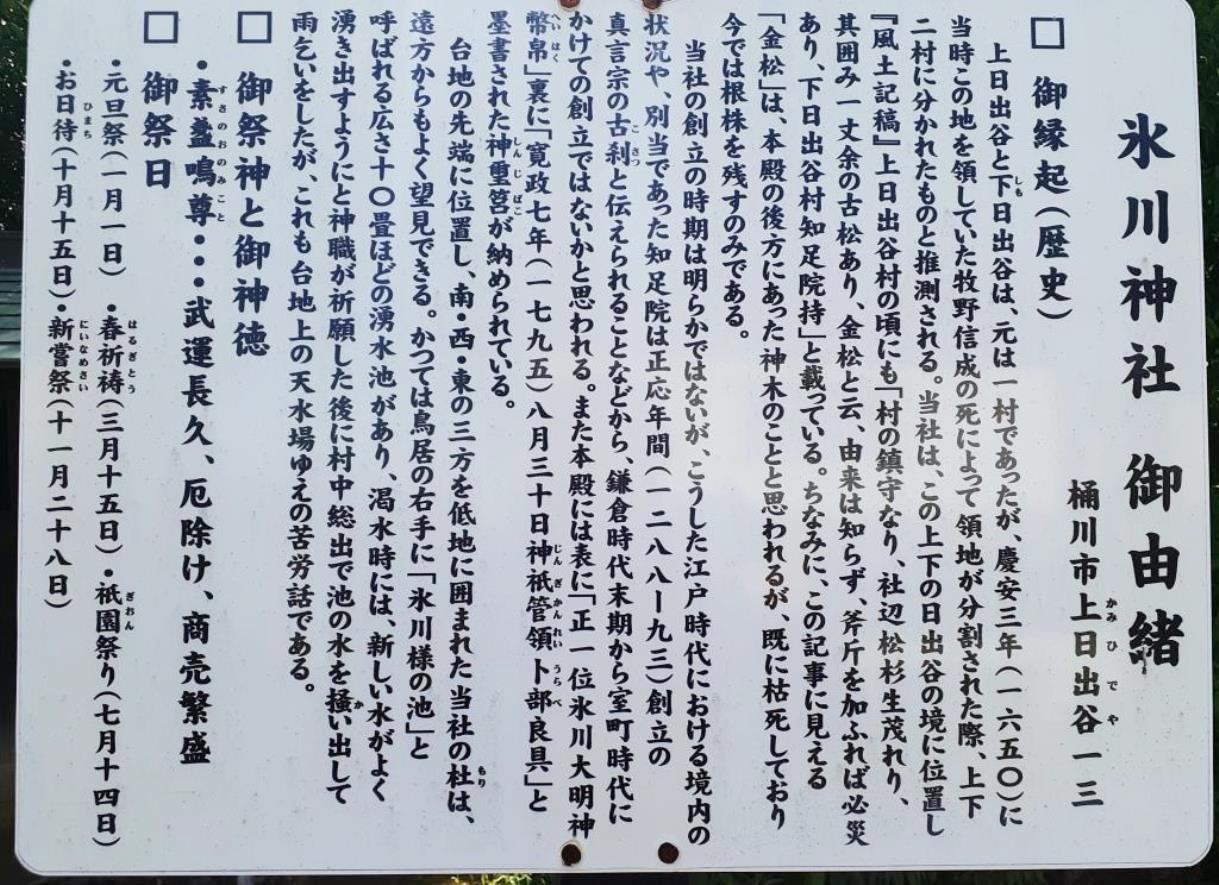 氷川神社 御由緒
桶川市上日出谷一三
□ 御縁起(歴史)
上日出谷と下日出谷は、元は一村であったが、慶安三年(一六五〇)に
当時この地を領していた牧野信成の死によって領地が分割された際、上下
二村に分かれたものと推測される。当社は、この上下の日出谷の境に位置し
『風土記稿』上日出谷村の頃にも「村の鎮守なり、社辺松杉生茂れり、
其囲み一丈余の古松あり、金松と云、由来は知らず、斧斤を加ふれば必災
あり、下日出谷村知足院持」と載っている。ちなみに、この記事に見える
「金松」は、本殿の後方にあった神木のことと思われるが、既に枯死しており
今では根株を残すのみである。
当社の創立の時期は明らかではないが、こうした江戸時代における境内の
状況や、別当であった知足院は正応年間(一二八八ー九三)創立の
真言宗の古刹と伝えられることなどから、鎌倉時代末期から室町時代に
かけての創立ではないかと思われる。また本殿には表に「正一位氷川大明神
幣帛」裏に「寛政七年(一七九五)八月三十日神祇管領卜部良具」と
墨書された神璽筥が納められている。
台地の先端に位置し、南・西・東の三方を低地に囲まれた当社の杜は、
遠方からもよく望見できる。かつては鳥居の右手に「氷川様の池」と
呼ばれる広さ十〇畳ほどの湧水池があり、渇水時には、新しい水がよく
湧き出すようにと神職が祈願した後に村中総出で池の水を掻い出して
雨乞いをしたが、これも台地上の天水場ゆえの苦労話である。
□ 御祭神と御神徳
・素盞嗚尊・・・武運長久、厄除け、商売繁盛
□ 御祭日
・元旦祭(一月一日) ・春祈祷(三月十五日)・祇園祭り(七月十四日)
・お日待(十月十五日)・新嘗祭(十一月二十八日)